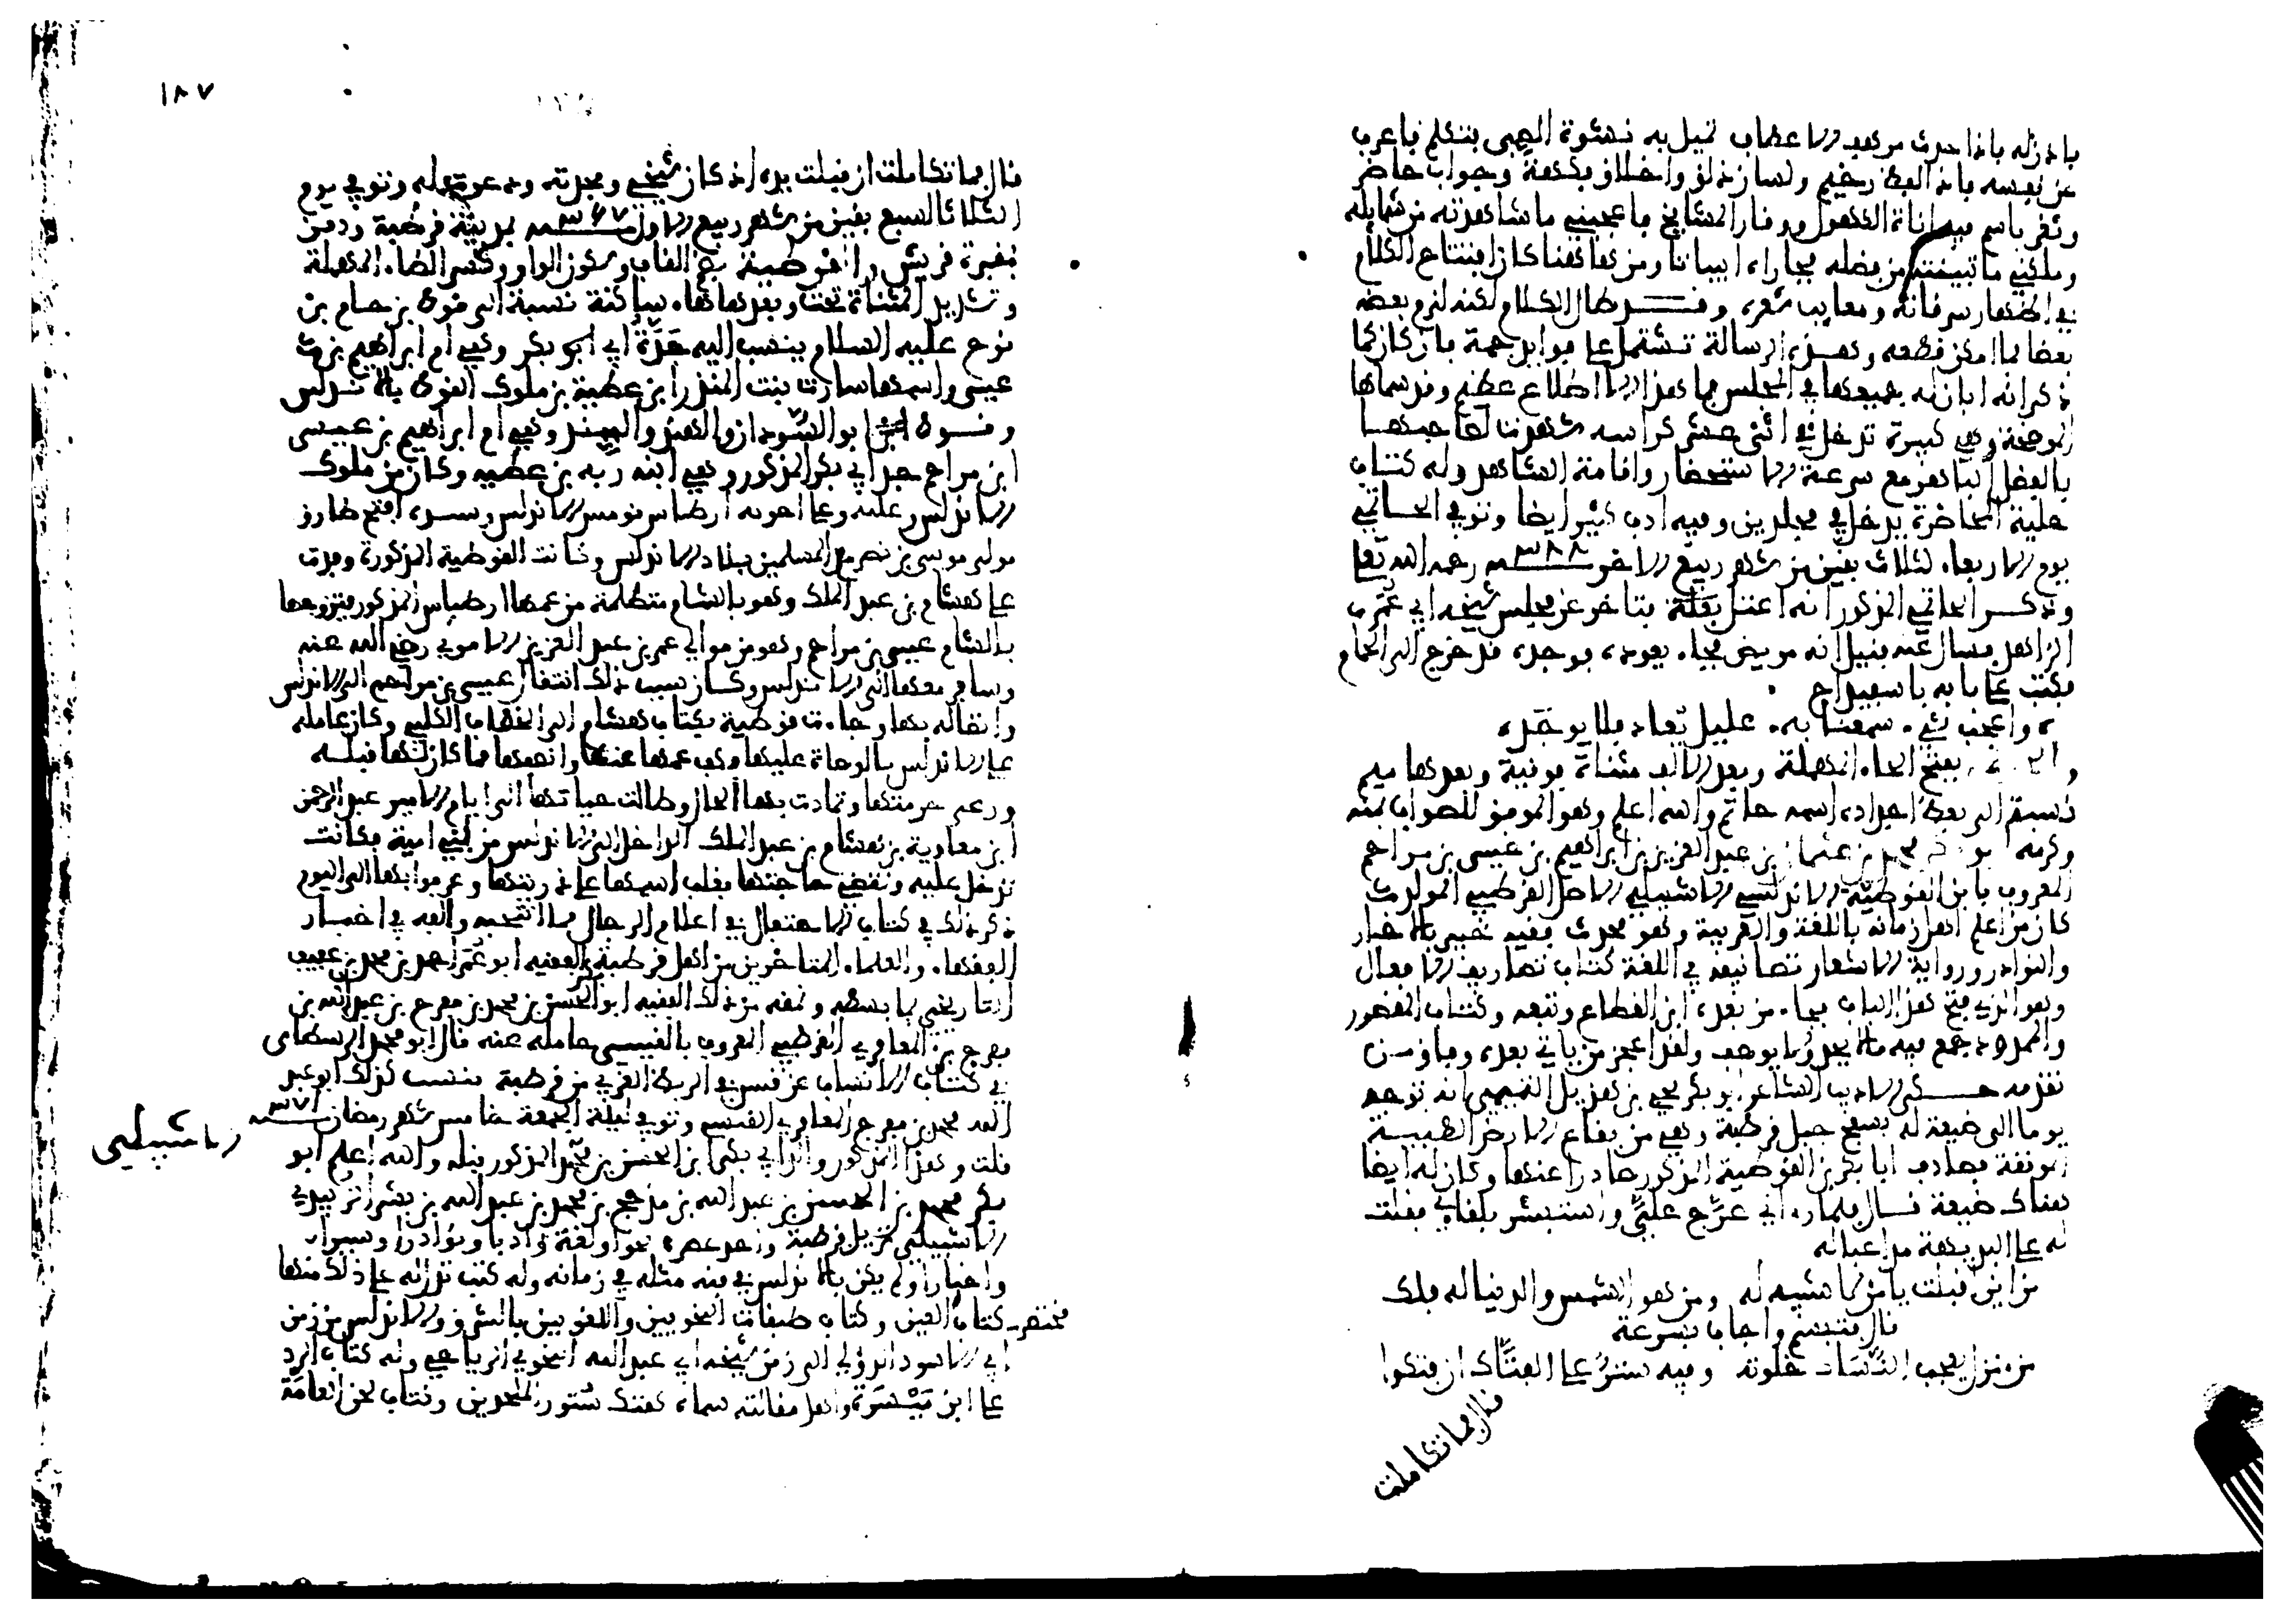 فأذن له فإذا حدث مرهف الأعطاف تميل به نشوة الصبى يتكلم فأعرب
عن نفسه فإذا لفظ رخيم ولسان ذلق وأخلاق فكهة وجواب حاضر
وثغر باسم فيه أناة الكهول ووقار المشايخ فأعجبني ما شاهدته من شمائله
وملكني ما تبينته من فضله فجاراه أبياتا ومن هاهنا كان افتتاح الكلام
في إظهار سرقاته ومعايب شعره وقد طال الكلام لكنه لزم بعضه
بعضا فما أمكن قطعه وهذه الرسالة تشتمل على فوائد جمة فإن كان كما
ذكر أنه أبان له جميعها في المجلس فما هذا إلا اطلاع عظيم وقد سماها
الموضحة وهي كبيرة تدخل في اثني عشر كراسة شهدت لصاحبها
بالفضل الباهر مع سرعة الاستحضار وإقامة الشاهد وله كتاب
حلية المحاضرة يدخل في مجلدين وفيه أدب كثير أيضا وتوفي الحاتمي
يوم الأربعاء لثلاث بقين من شهر ربيع الآخر سنة ٣٨٨ رحمه الله تعالى
وذكر الحاتمي المذكور أنه اعتل بعلة فتأخر عن مجلس شيخه أبي عمر
الزاهد فسأل عنه فقيل إنه مريض فجاء يعوده فوجده قد خرج إلى الحمام
فكتب على بابه باسفيداج
وأعجب شيء سمعنا به عليل يعاد فلا يوجد
بفتح الحاء المهملة وبعد الألف مثناة فوقية وبعدها ميم
نسبة إلى بعض أجداده اسمه حاتم والله أعلم وهو الموفق للصواب بمنه
وكرمه أبو بكر محمد بن عمر بن عبد العزيز بن إبراهيم بن عيسى بن مزاحم
المعروف بابن القوطية الأندلسي الإشبيلي الأصل القرطبي المولد
كان من أعلم أهل زمانه باللغة والعربية وهو محدث فقيه خبير بالأخبار
والنوادر ورواية الأشعار تصانيفه في اللغة كتاب تصاريف الأفعال
وهو الذي فتح هذا الباب فجاء من بعده ابن القطاع وتبعه وكتاب المقصور
والممدود جمع فيه ما لا يحد ولا يوصف ولقد أعجز من يأتي بعده وفاق من
تقدمه حكى الأديب الشاعر أبو بكر يحيى بن هذيل التميمي أنه توجه
يوما إلى ضيعة له بسفح جبل قرطبة وهي من بقاع الأرض الطيبة
المونقة فصادف أبا بكر بن القوطية المذكور صادرا عنها وكان له أيضا
هناك ضيعة قال فلما رآني عرج علي واستبشر بلقائي فقلت
له على البديهة مداعبا له
من أين أقبلت يا من لا شبيه له ومن هو الشمس والدنيا له فلك
قال فتبسم وأجاب بسرعة
من منزل يعجب النساك خلوته وفيه ستر على الفتاك إن فتكوا
قال فما تمالكت
١٨٧
قال فما تمالكت أن قبلت يده إذ كان شيخي ومجدته ودعوت له وتوفي يوم
الثلاثاء لسبع بقين من شهر ربيع الأول سنة ٣٦٧ بمدينة قرطبة ودفن
بمقبرة قريش والقوطية بضم القاف وسكون الواو وكسر الطاء المهملة
وتشديد المثناة تحت وبعدها هاء ساكنة نسبة إلى قوط بن حام بن
نوح عليه السلام ينسب إليه جدة أبي بكر وهي أم إبراهيم بن
عيسى واسمها سارة بنت المنذر ابن عطية من ملوك القوط بالأندلس
وقوط أبو السودان والهند والسند وهي أم إبراهيم بن عيسى
ابن مزاحم جد أبي بكر المذكور وهي ابنة ربه بن عطية وكان من ملوك
الأندلس وعليه وعلى أخويه أرطباس قومس الأندلس وسيده افتتح طارق
مولى موسى بن نصير مع المسلمين بلاد الأندلس وكانت القوطية المذكورة وفدت
على هشام بن عبد الملك وهو بالشام متظلمة من عمها أرطباس المذكور فتزوجها
بالشام عيسى بن مزاحم وهو من موالي عمر بن عبد العزيز الأموي رضي الله عنه
وسافر معها إلى الأندلس وكان سبب ذلك انتقال عيسى بن مزاحم إلى الأندلس
وانتقاله بها وجاءت قوطية بكتاب هشام إلى الخطاب الكلبي وكان عامله
على الأندلس بالوصاة عليها وكف عمها عنها وأنصفها فما كان لها قبله
ورعى حرمتها وتمادت بها الحال وطالت حياتها إلى أيام الأمير عبد الرحمن
ابن معاوية بن هشام بن عبد الملك الداخل إلى الأندلس من بني أمية فكانت
تدخل عليه وتقضي حاجتها فغلب اسمها على ذريتها وعرفوا بها إلى اليوم
ذكر ذلك في كتاب الاحتفال في أعلام الرجال مما انتخبه وألفه في أخبار
الفقهاء والعلماء المتأخرين من أهل قرطبة الفقيه أبو عمر أحمد بن محمد بن عفيف
التاريخي مما بسطه ونمقه من ذلك الفقيه أبو بكر الحسن بن محمد بن مفرج بن عبد الله بن
مفرج بن المعافري القرطبي المعروف بالقبشي حامله عنه قال أبو محمد الرشاطي
في كتاب الأنساب عن قبش في الربض الغربي من قرطبة ينسب كذلك أبو عبد
الله محمد بن مفرج المعافري القبشي وتوفي ليلة الجمعة خامس شهر رمضان سنة ٣٧١
الإشبيلي
قلت وهذا المذكور والد أبي بكر ابن الحسن بن محمد المذكور قبله والله أعلم أبو
بكر محمد بن الحسن بن عبد الله بن مذحج بن محمد بن عبد الله بن بشر الزبيدي
الإشبيلي نزيل قرطبة واحد عصره نحوا ولغة وأدبا ونوادرا وسيرا
وأخبارا ولم يكن بالأندلس في فنه مثله في زمانه وله كتب تدل على ذلك منها
مختصر كتاب العين وكتاب طبقات النحويين واللغويين بالشرق والأندلس من زمن
أبي الأسود الدؤلي إلى زمن شيخه أبي عبد الله النحوي الرياحي وله كتاب الرد
على ابن مسرة وأهل مقالته سماه هتك ستور الملحدين وكتاب لحن العامة